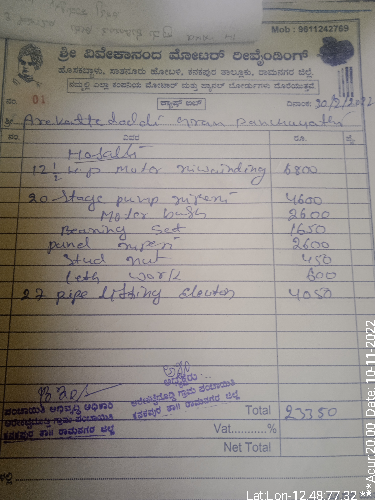 Mob : 9611242769
ಶ್ರೀ ವಿವೇಕಾನಂದ ಮೋಟರ್ ರೀವೈಂಡಿಂಗ್
ಹೊಸಕಬ್ಬಾಳು, ಸಾತನೂರು ಹೋಬಳಿ, ಕನಕಪುರ ತಾಲ್ಲೂಕು, ರಾಮನಗರ ಜಿಲ್ಲೆ
ನಮ್ಮಲ್ಲಿ ಎಲ್ಲಾ ಕಂಪನಿಯ ಮೋಟಾರ್ ಮತ್ತು ಪ್ಯಾನಲ್ ಬೋರ್ಡುಗಳು ದೊರೆಯುತ್ತವೆ
ನಂ. 01 ಕ್ಯಾಷ್ ಬಿಲ್ ದಿನಾಂಕ:
ಶ್ರೀ Arekattedoddi gram panchayathi
ನಂ. ವಿವರ ರೂ. ಪೈ.
12 1/2 h.p motor rewinding 6800
20 Stage pump 4600
Motor bush 2600
Bearing Set 1650
panel 2600
Stud nut 450
Leth work 600
27 pipe lifting 4050
ಅಧ್ಯಕ್ಷರು
ಪಂಚಾಯಿತಿ ಅಭಿವೃದ್ಧಿ ಅಧಿಕಾರಿ ಅರೇಕಟ್ಟೆದೊಡ್ಡಿ ಗ್ರಾಮ ಪಂಚಾಯಿತಿ
ಅರೇಕಟ್ಟೆದೊಡ್ಡಿ ಗ್ರಾಮ ಪಂಚಾಯಿತಿ ಕನಕಪುರ ತಾ|| ರಾಮನಗರ ಜಿಲ್ಲೆ
ಕನಕಪುರ ತಾ|| ರಾಮನಗರ ಜಿಲ್ಲೆ
Total 23350
Vat...........%
Net Total
Lat:Lon-12.48:77.32 ***Acur:20.00, Date: 10-11-2022